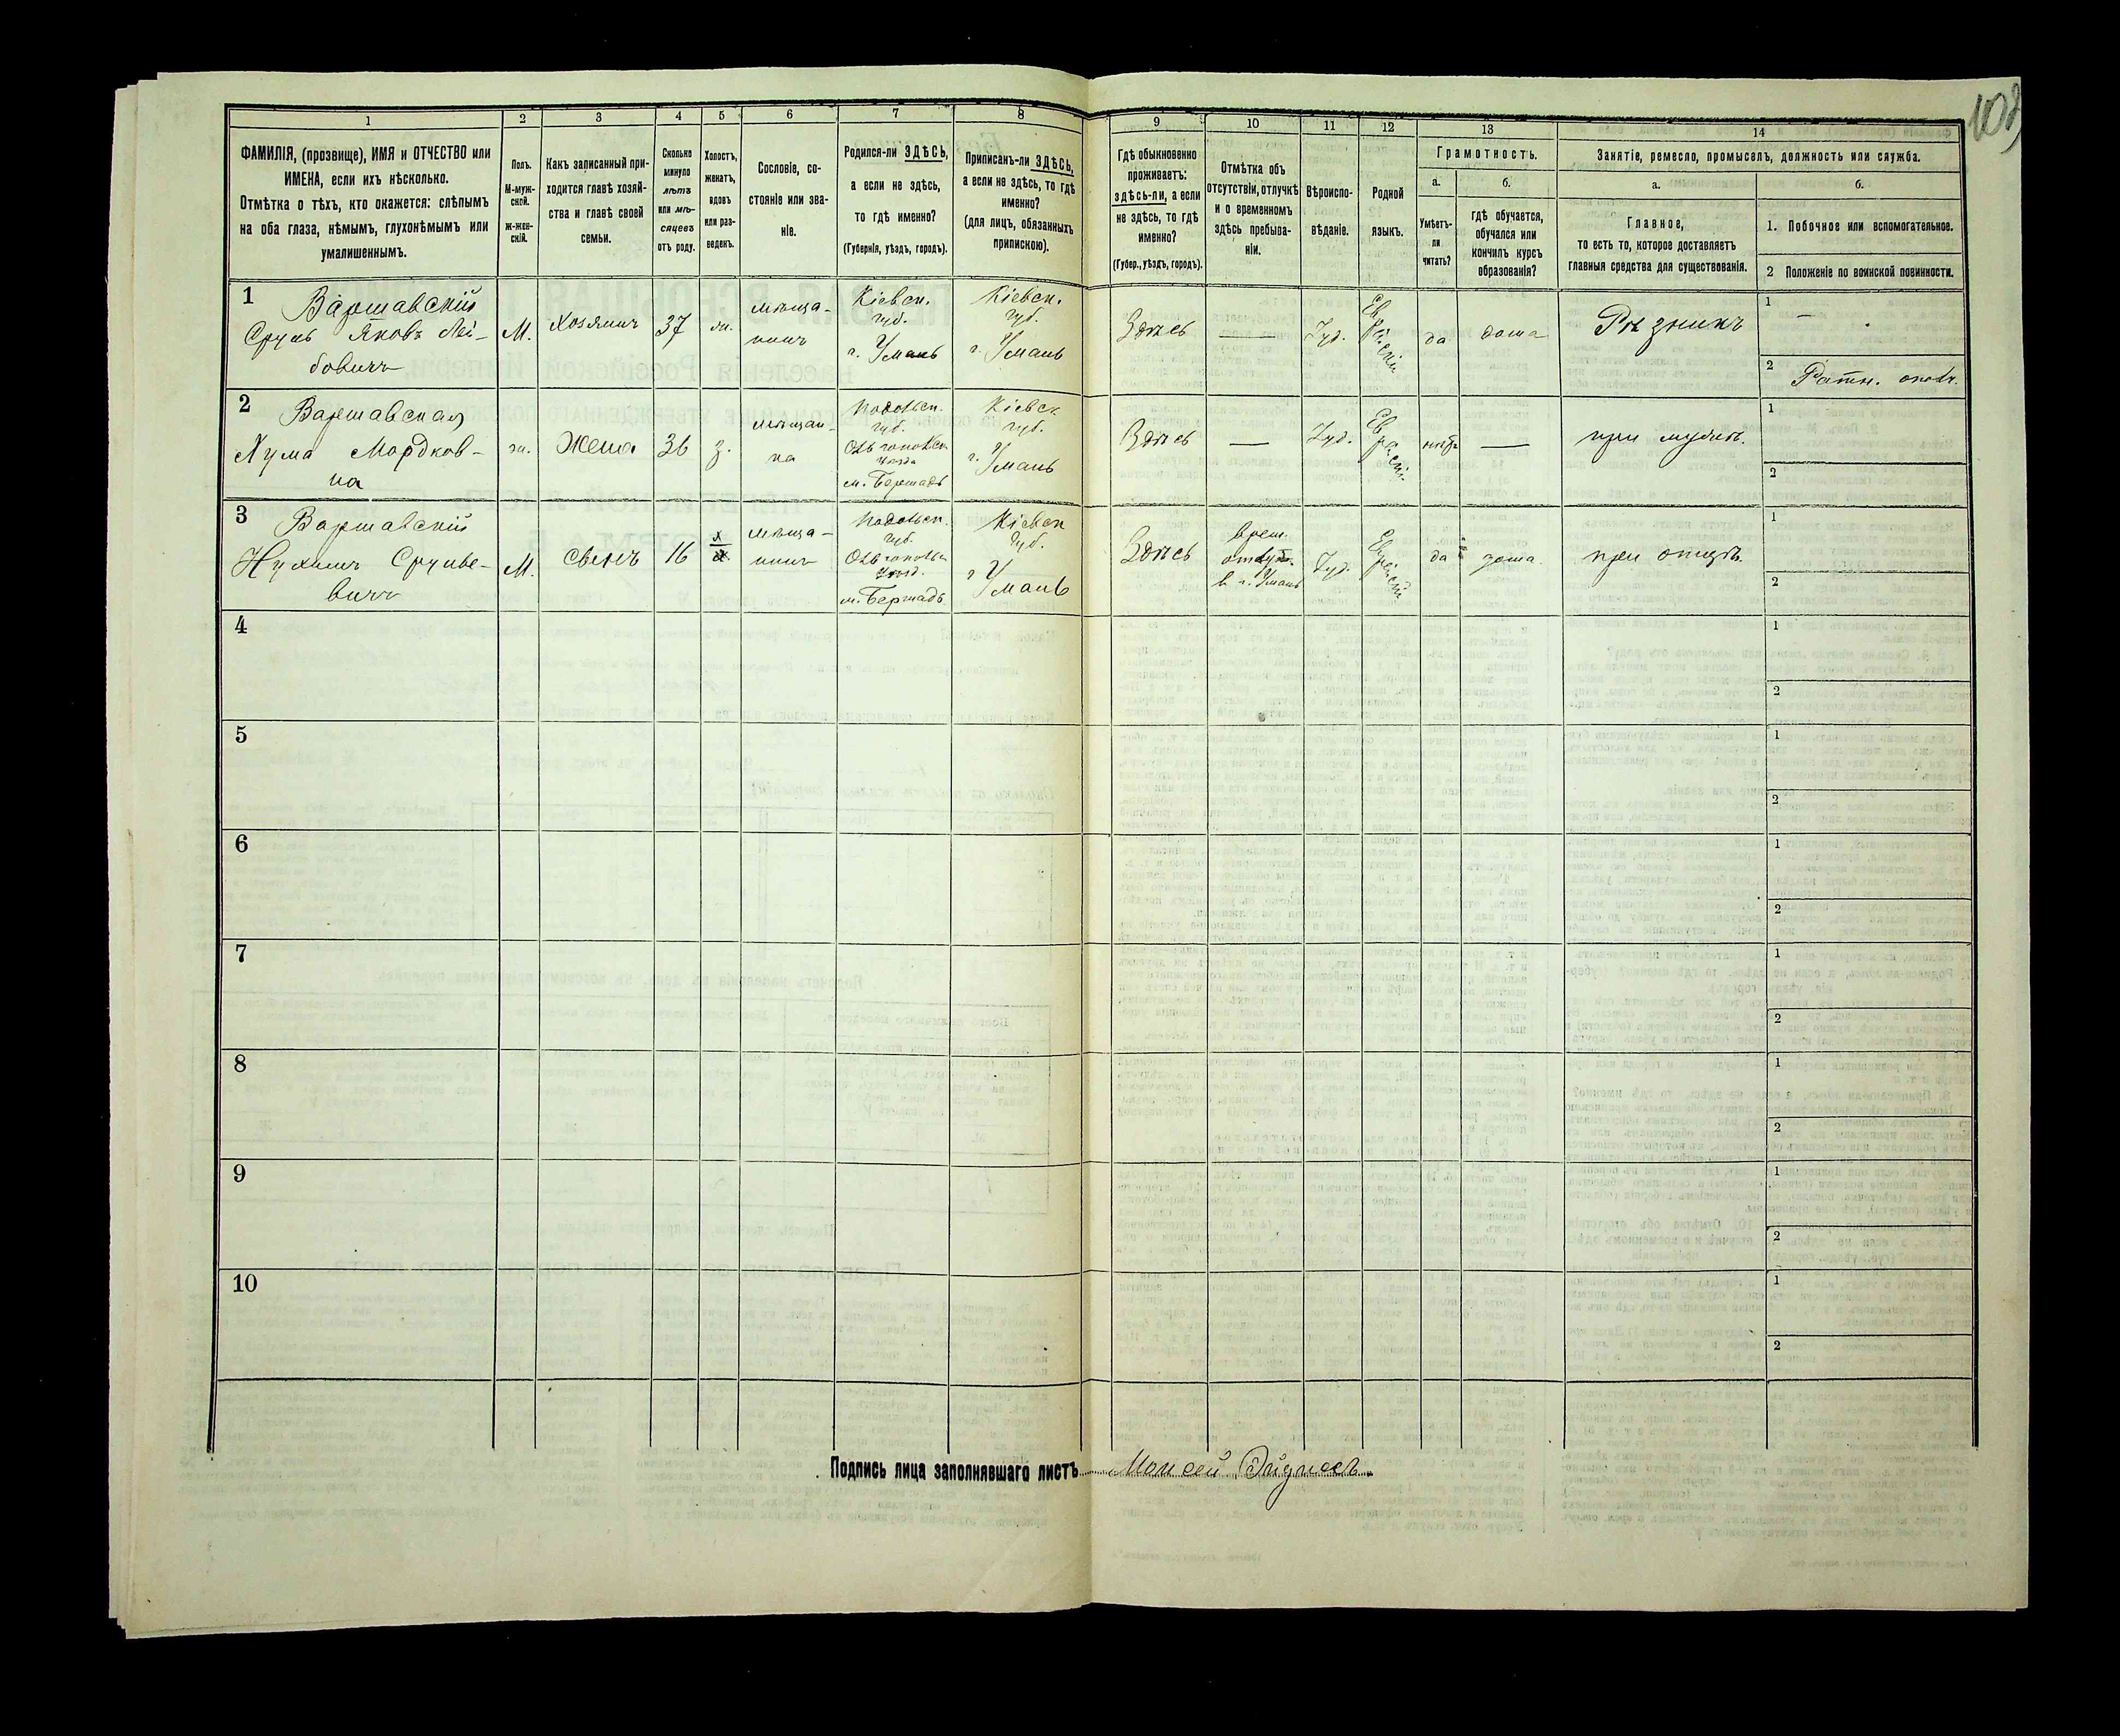 108
1 2 3 4 5 6 7 8 9 10 11 12 13 14
ФАМИЛІЯ, (прозвище), ИМЯ и ОТЧЕСТВО или
ИМЕНА, если ихъ нѣсколько.
Отмѣтка о тѣхъ, кто окажется: слѣпымъ
на оба глаза, нѣмымъ, глухонѣмымъ или
умалишеннымъ.
Полъ.
М-муж-
ской.
ж-жен-
скій.
Какъ записанный при-
ходится главѣ хозяй-
ства и главѣ своей
семьи.
Сколько
минуло
лѣтъ
или мѣ-
сяцевъ
отъ роду.
Холостъ,
женатъ,
вдовъ
или раз-
веденъ.
Сословіе, со-
стояніе или зва-
ніе.
Родился-ли ЗДѢСЬ,
а если не здѣсь,
то гдѣ именно?
(Губернія, уѣздъ, городъ).
Приписанъ-ли ЗДѢСЬ,
а если не здѣсь, то гдѣ
именно?
(для лицъ, обязанныхъ
припискою).
Гдѣ обыкновенно
проживаетъ:
здѣсь-ли, а если
не здѣсь, то гдѣ
именно?
(Губер., уѣздъ, городъ).
Отмѣтка объ
отсутствіи, отлучкѣ
и о временномъ
здѣсь пребыва-
ніи.
Вѣроиспо-
вѣданіе.
Родной
языкъ.
Грамотность.
а.
Умѣетъ-
ли
читать?
б.
гдѣ обучается,
обучался или
кончилъ курсъ
образованія?
Занятіе, ремесло, промыселъ, должность или служба.
а.
Главное,
то есть то, которое доставляетъ
главныя средства для существованія.
б.
1. Побочное или вспомогательное.
2 Положеніе по воинской повинности.
1
Варшавскій
Сруль Яковъ Лей-
бовичъ
М.
Хозяинъ
37
ж.
мѣща-
нинъ
Кіевск.
губ.
г. Умань
Кіевск.
губ.
г. Умань
Здѣсь
—
Іуд.
Еврейскій
да
дома
Рѣзникъ
1 —
2 Ратн. ополч.
2
Варшавская
Хума Мордков-
на
ж.
Жена
36
з.
мѣщан-
ка
Подольск.
губ.
Ольгопольск.
уѣзда
м. Бершадь
Кіевск
губ.
г. Умань
Здѣсь
—
Іуд.
Еврейскій
нѣтъ
—
при мужѣ.
1
2
3
Варшавскій
Нухимъ Срулье-
вичъ
М.
Сынъ
16
х
мѣща-
нинъ
Подольск.
губ.
Ольгопольск.
уѣзд.
м. Бершадь
Кіевск
губ.
г Умань
Здѣсь
врем.
отлуч.
в г. Умань
Іуд.
Еврейск
да
дома.
при отцѣ.
1
2
4
1
2
5
1
2
6
1
2
7
1
2
8
1
2
9
1
2
10
1
2
Подпись лица заполнявшаго листъ Моисей